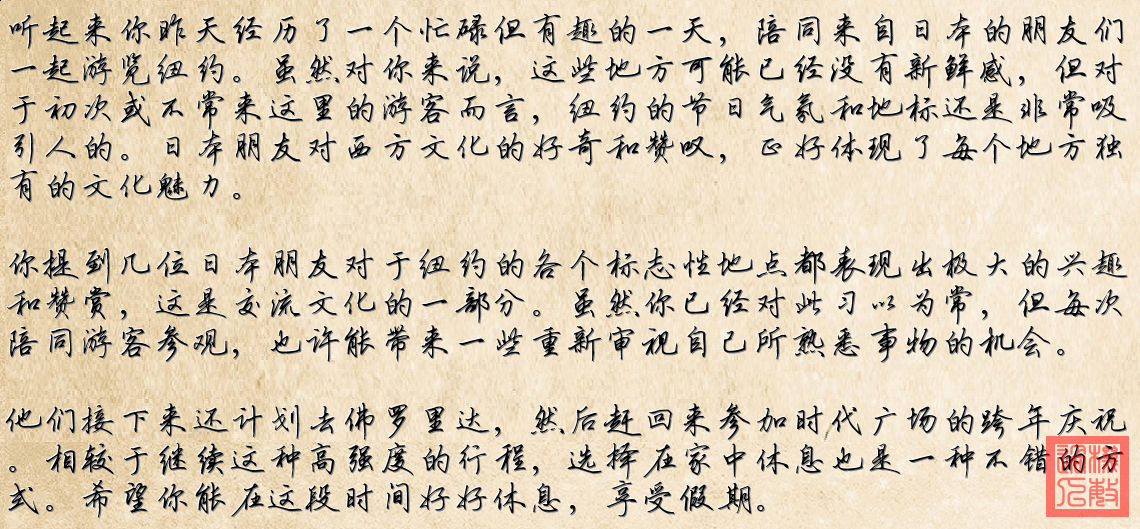 听起来你昨天经历了一个忙碌但有趣的一天，陪同来自日本的朋友们
一起游览纽约。虽然对你来说，这些地方可能已经没有新鲜感，但对
于初次或不常来这里的游客而言，纽约的节日气氛和地标还是非常吸
引人的。日本朋友对西方文化的好奇和赞叹，正好体现了每个地方独
有的文化魅力。
你提到几位日本朋友对于纽约的各个标志性地点都表现出极大的兴趣
和赞赏，这是交流文化的一部分。虽然你已经对此习以为常，但每次
陪同游客参观，也许能带来一些重新审视自己所熟悉事物的机会。
他们接下来还计划去佛罗里达，然后赶回来参加时代广场的跨年庆祝
。相较于继续这种高强度的行程，选择在家中休息也是一种不错的方
式。希望你能在这段时间好好休息，享受假期。